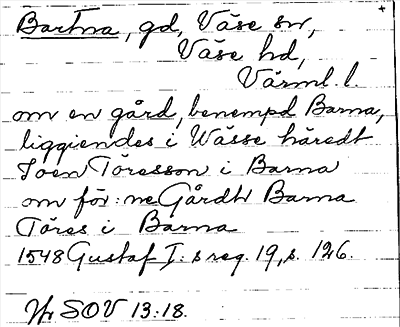 Bartna, gd, Väse sn,
Väse hd,
Värml. l.
om en gård, benempd Barna,
liggiendes i Wässe häredt
Joen Töresson i Barna
om för:ne Gårdh Barna
Töres i Barna
1548 Gustaf I:s reg. 19, s. 126.
SOV 13:18.